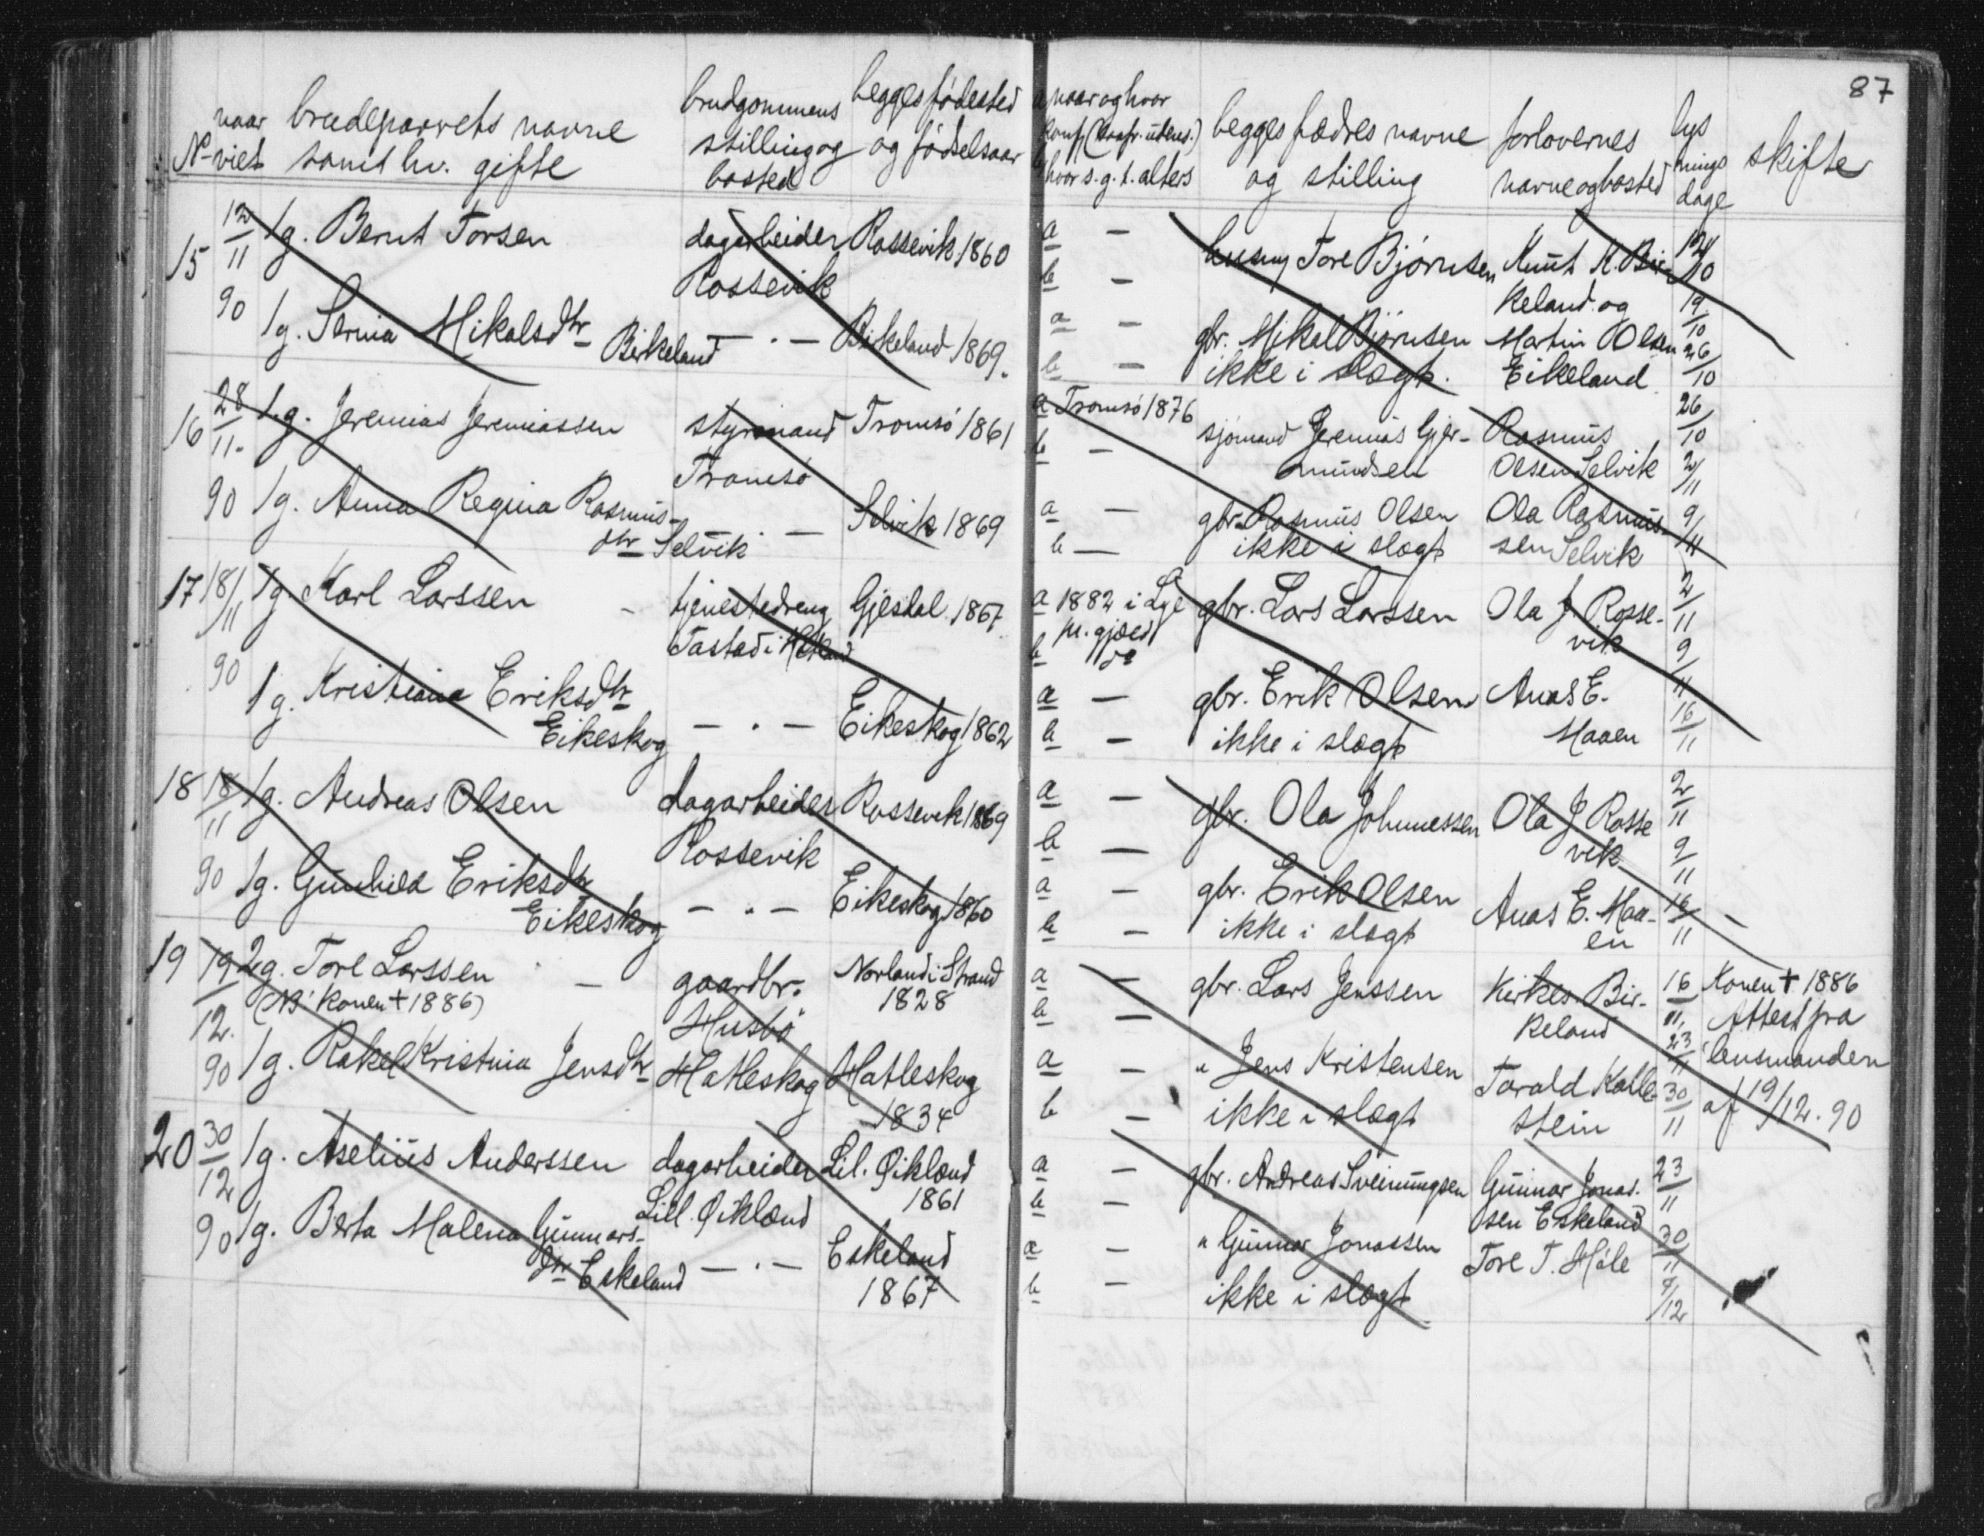 87
No naar viet
brudeparrets navne samt hv. gifte
brudgommens stilling og bosted
begges fødested og fødselsaar
a naar og hvor konf. (koafr. utens.)
b hvor s. g. t. alters
begges fædres navne og stilling
forlovernes navne og bosted
lysningsdage
skifte
15 12/11 90 1g. Bernt Torsen
dagarbeider Rossevik
Rossevik 1860
a —
b —
husm. Tore Bjørnsen
Knut K. Bir-
keland og
12/10
19/10
1g. Serina Mikalsdtr Birkeland
— . —
Birkeland 1869.
a —
b —
gbr. Mikal Bjørnsen
ikke i slægt.
Martin Olsen
Eikeland
26/10
16 28/11. 90 1g. Jeremias Jeremiassen
styrmand Tromsø
Tromsø 1861
a Tromsø 1876
b —
sjömand Jeremias Gjer-
mundsen
Rasmus
Olsen Selvik
26/10
2/11
1g. Anna Regina Rasmus-
dtr Selvik
— . —
Selvik 1869
a —
b —
gbr. Rasmus Olsen
ikke i slægt
Ola Rasmus-
sen Selvik
9/11
17 18/11 90 1g. Karl Larssen
tjenestedreng
Tastad i Hetland
Gjesdal 1867
a 1882 i Lye
pr. gjæsd
b do
gbr. Lars Larssen
Ola J. Rosse-
vik
2/11
9/11
1g. Kristiana Eriksdtr
Eikeskog
— . —
Eikeskog 1862
a —
b —
gbr. Erik Olsen
ikke i slægt
Anas E.
Maaen
16/11
18 18/11 90 1g. Andreas Olsen
dagarbeider
Rossevik
Rossevik 1869
a —
b —
gbr. Ola Johannessen
Ola J Rosse
vik
2/11
9/11
1g. Gunhild Eriksdtr
Eikeskog
— . —
Eikeskog 1860
a —
b —
gbr. Erik Olsen
ikke i slægt
Anas E. Maa-
en
16/11
—
19 19/12. 90 2g. Tore Larssen
(NB konen † 1886)
gaardbr.
Husbö
Norland i Strand
1828
a —
b —
gbr. Lars Jenssen
Kirkes. Bir-
keland
16/11.
23/11
Konen † 1886
Attest fra
lensmanden
af 19/12. 90
1g. Rakel Kristina Jensdtr
Hatleskog
Hatleskog
1834
a —
b —
" Jens Kristensen
ikke i slægt
Tarald Kalle-
stein
30/11
20 30/12 90 1g. Aselius Anderssen
dagarbeider
Lill. Øiklænd
Lil. Øiklænd
1861
a —
b —
gbr. Andreas Sveinungsen
Gunnar Jonas-
sen Eskeland
23/11
30/11
1g. Berta Malena Gunnars-
dtr Eskeland
— . —
Eskeland
1867
a —
b —
" Gunnar Jonassen
ikke i slægt
Tore T. Høle